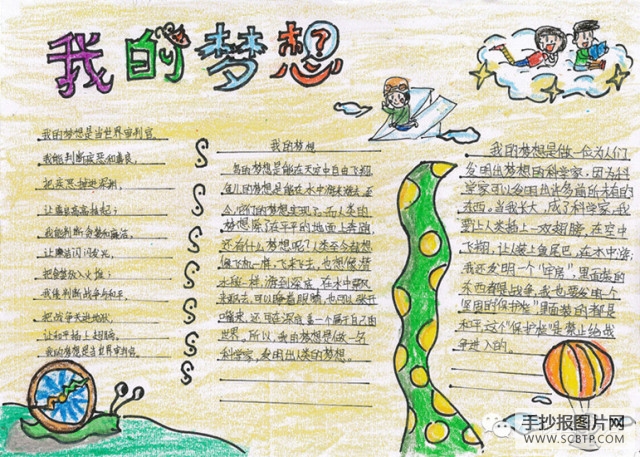 我的梦想
我的梦想是当世界审判官。
我能判断疾恶和善良,
把疾恶掉进泥
让善良高高挂起?
我能判断贪婪和廉洁,
让廉洁闪闪发光,
把贪婪放入火堆!
我能判断战争与和平,
把战争关进地狱,
让和平插上翅膀,
我的梦想是当世界审判官。
我的梦想
鸟的梦想是能在天空中自由飞翔,
鱼儿的梦想是能在水中游来游去,至
今,它们的梦想实现了。而人类的
梦想除了在平平的地面上奔跑
还有什么梦想呢?人类至今都想
像飞机一样,飞来飞去,也想像潜
水艇一样,游到深底,在水中游来
来游去,可以睁着眼睛,也可以张开
嘴来,还可在深底盖一个属于自己的
世界。所以,我的梦想是做一名
科学家,发明出人类的梦想。
我的梦想是做一位为人们
发明出梦想的科学家,因为科
学家可以发明出许多前所未有的
东西,当我长大,成了科学家,我
要让人类插上一双翅膀,在空中
飞翔,让人装上鱼尾巴,在水中游;
我还发明一个"牢房",里面装的
东西都是战争,我也要发明个
"坚固的保护松"里面装的都是
和平,这个"保护松"是禁止给战
争进入的。
手抄报图片网
WWW.SCBTP.COM